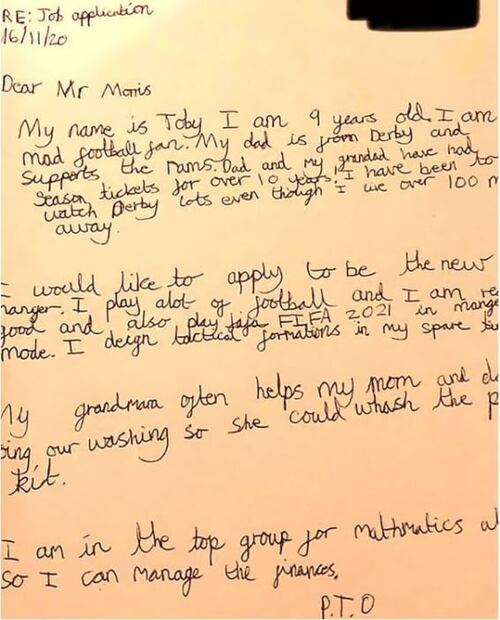 RE: Job application
16/11/20
Dear Mr Morris
My name is Toby I am 9 years old. I am
mad football fan. My dad is from Derby and
supports the rams. Dad and my grandad have had
season tickets for over 10 years! I have been to
watch Derby lots even though I live over 100 m
away.
I would like to apply to be the new
manger. I play alot of football and I am re
good and also play fafa FIFA 2021 in manger
mode. I deign tactical formations in my spare
My grandmara often helps my mom and d
oing our washing so she could whash the p
kit.
I am in the top group for mathmatics a
So I can manage the finances.
P.T.O